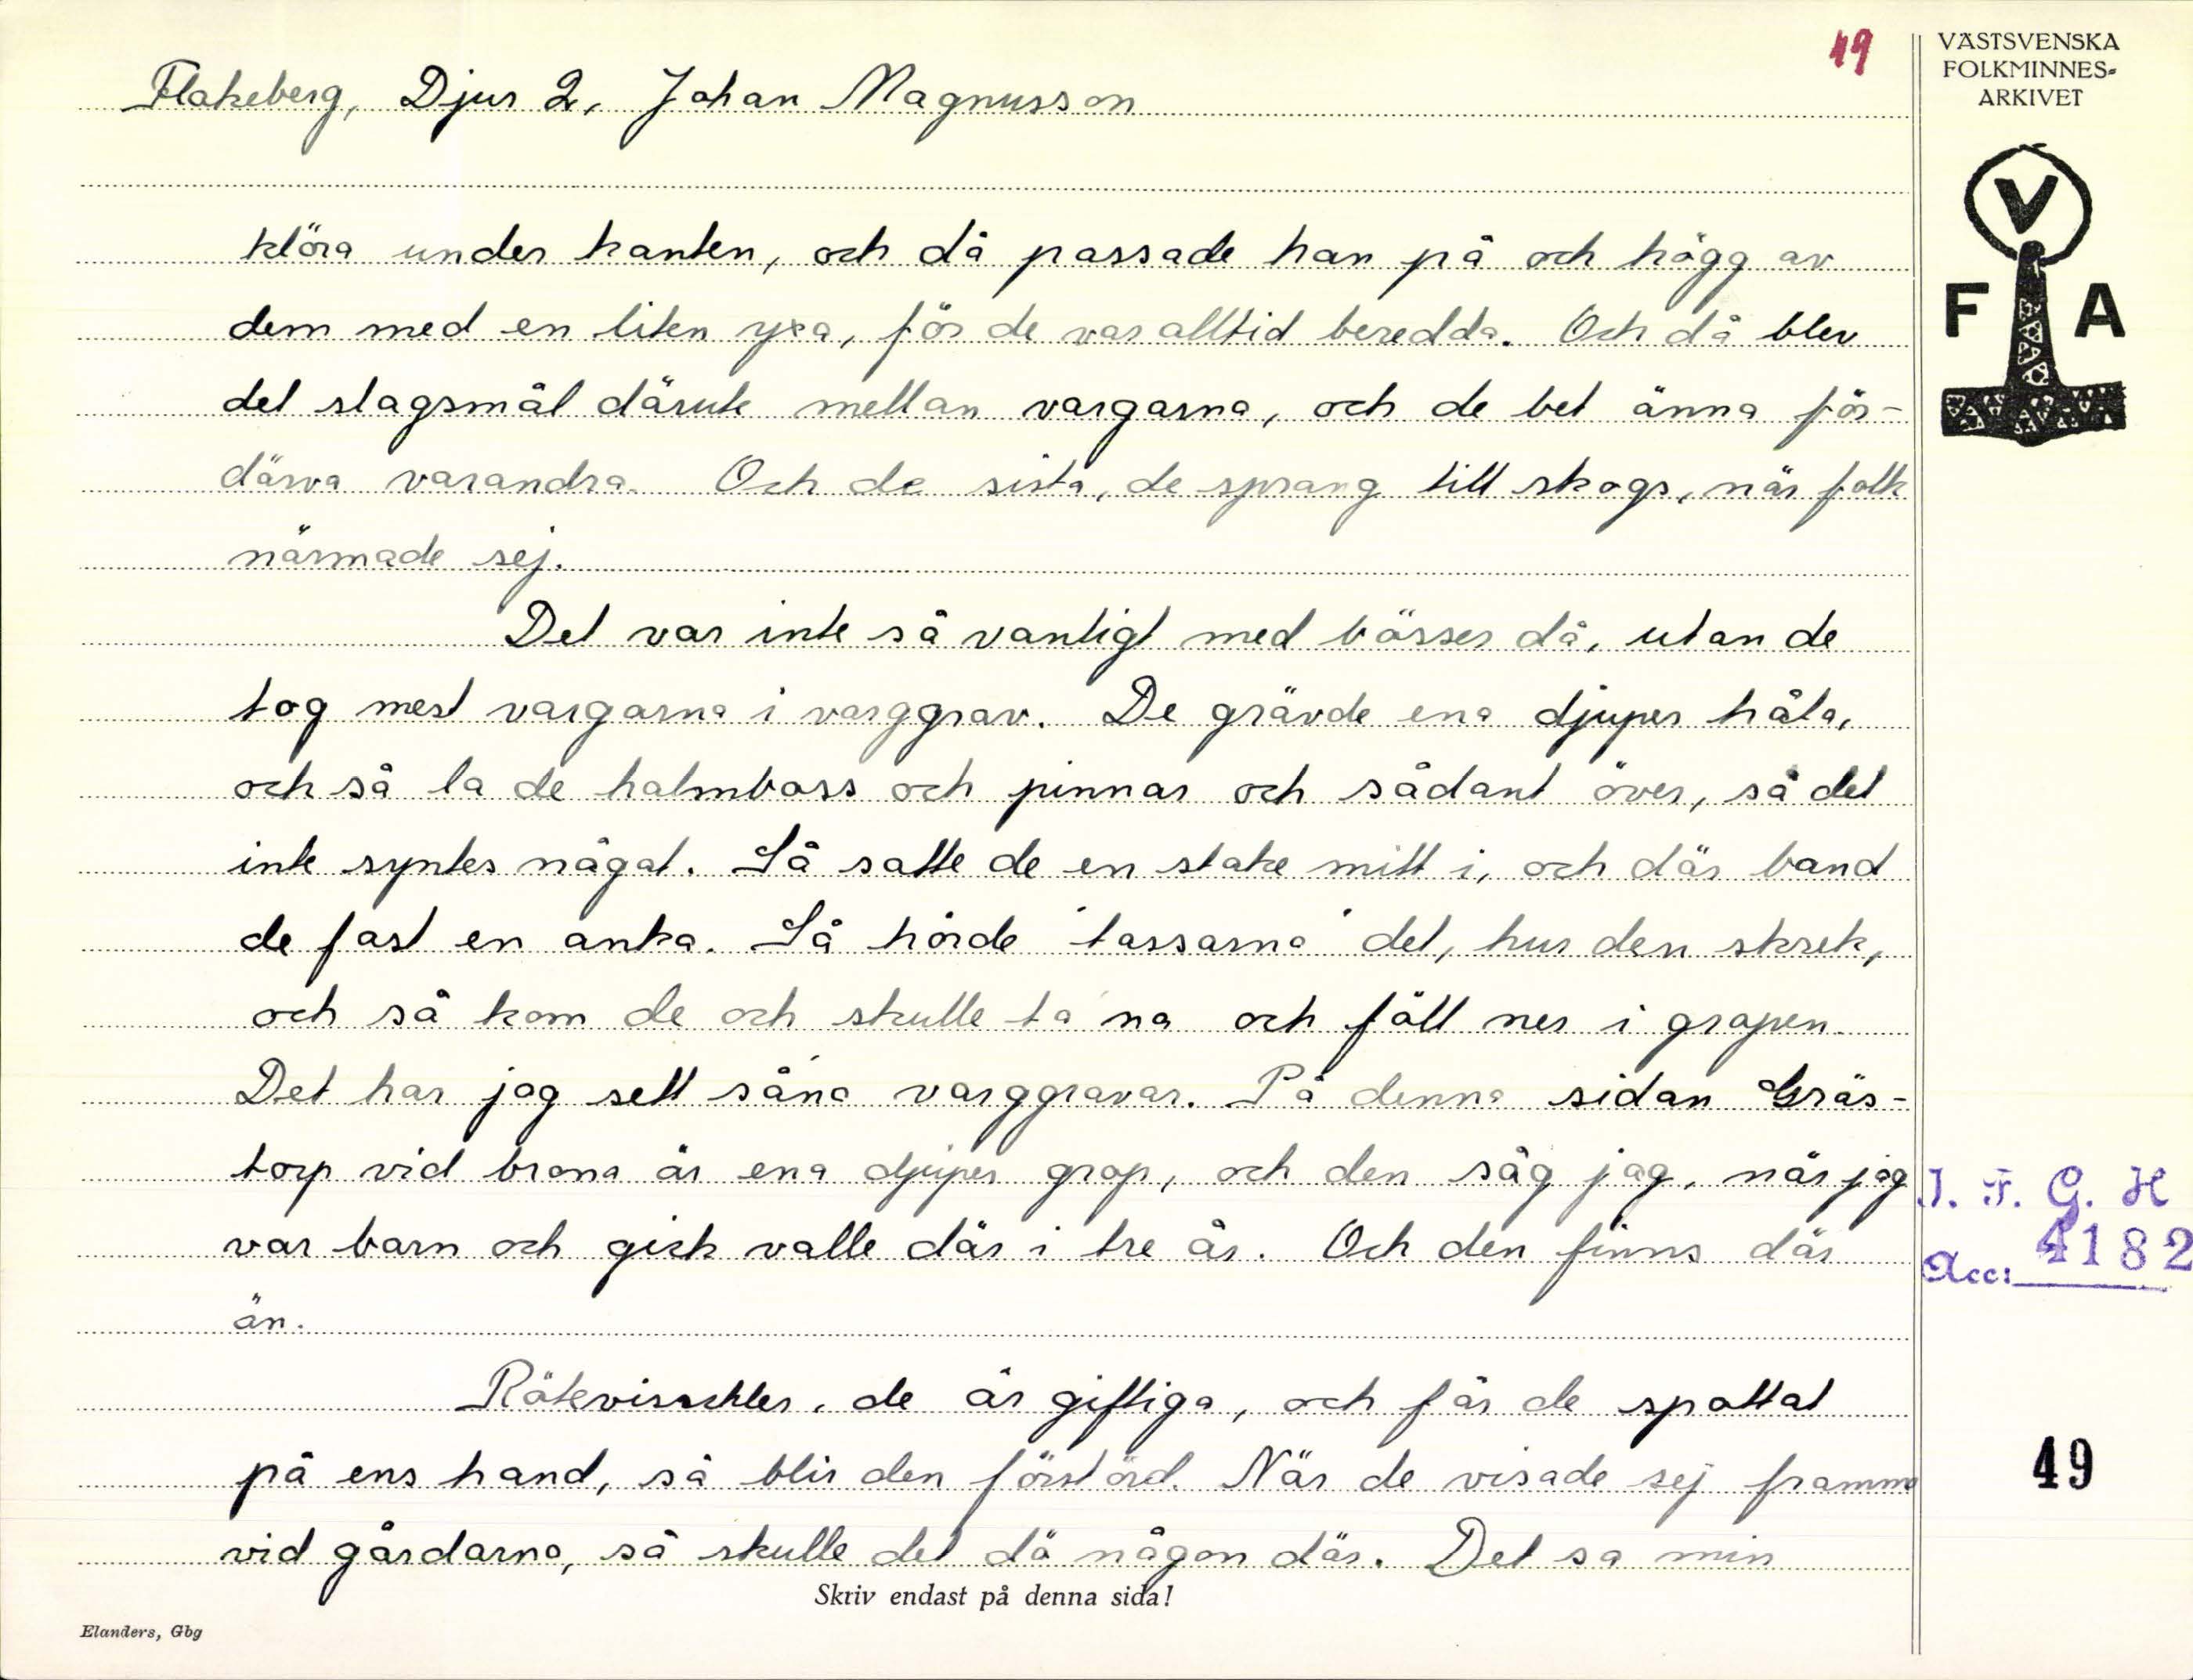 49
Flakeberg, Djur 2, Johan Magnusson
klöra under kanten, och då passade han på och högg av
dem med en liten yxa, för de var alltid beredda. Och då blev
det slagsmål därute mellan vargarna, och de bet änna för-
därva varandra. Och de sista, de sprang till skogs, när folk
närmade sej.
Det var inte så vanligt med bösser då, utan de
tog mest vargarna i varggrav. De grävde ena djuper håla,
och så la de halmboss och pinnar och sådant över, så det
inte syntes någat. Så satte de en stake mitt i, och där band
de fast en anka. Så hörde "tassarna" det, hur den skrek,
och så kom de och skulle ta'na och föll ner i gropen.
Det har jag sett såna varggravar. På denna sidan Gräs-
torp vid brona är ena djuper grop, och den såg jag, när jag
var barn och gick valle där i tre år. Och den finns där
än.
de är giftiga, och får de spottat
på ens hand, så blir den förstörd. När de visade sej framma
vid gårdarna, så skulle det dö någon där. Det sa min
Skriv endast på denna sida!
Elanders, Gbg
VÄSTSVENSKA
FOLKMINNES-
ARKIVET
V
F A
I. F. G. H
Acc: 4182
49